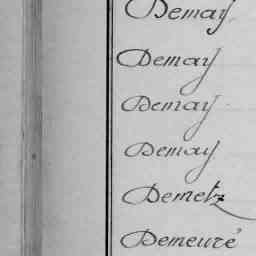 Demay
Demay
Demay
Demay
Demetz
Demeuré